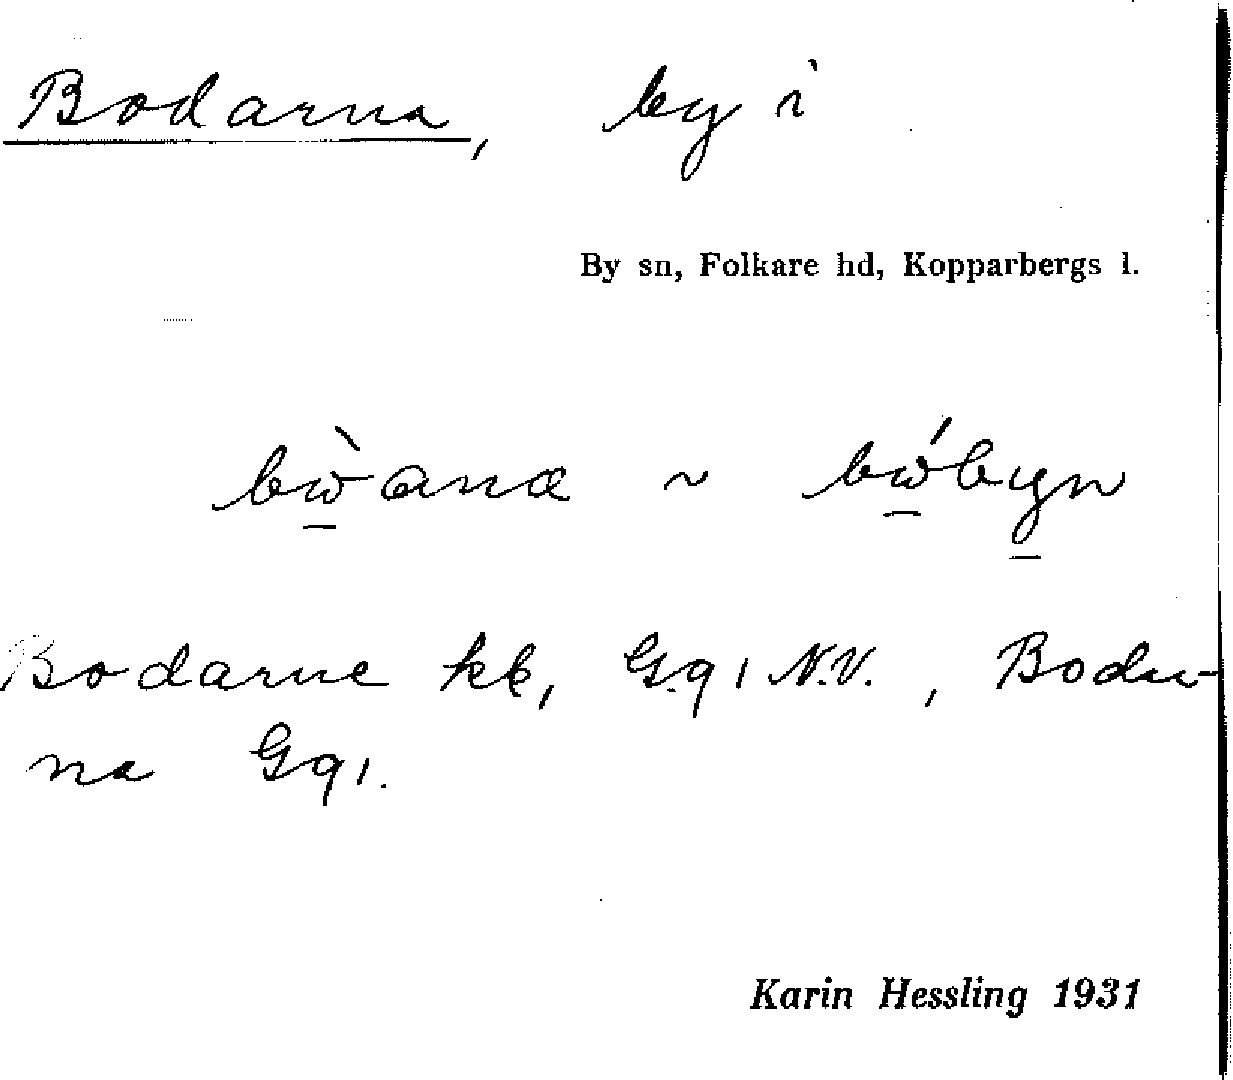 Bodarna, by i
By sn, Folkare hd, Kopparbergs l.
bẁ̠ana ~ bẃ̠by̠n
Bodarne kk, G.q1 N.V., Bodar-
na Gq1.
Karin Hessling 1931